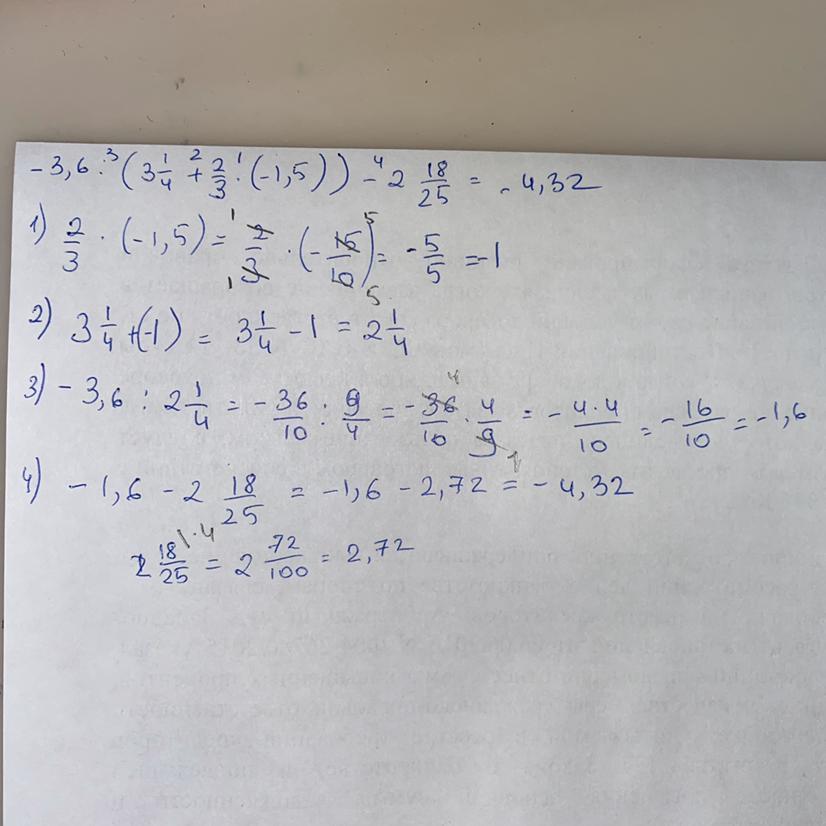 -3,6 :³ (3 1/4 +² 2/3 ·¹ (-1,5)) -⁴ 2 18/25 = -4,32
1) 2/3 · (-1,5) = ¹ 2/3 ₁ · (- 15/10)⁵₅ = - 5/5 = -1
2) 3 1/4 + (-1) = 3 1/4 - 1 = 2 1/4
3) - 3,6 : 2 1/4 = - 36/10 : 9/4 = - 36⁴/10 · 4/9₁ = - 4·4/10 = - 16/10 = -1,6
4) - 1,6 - 2 18/25 = -1,6 - 2,72 = - 4,32
2 18/25 \·4 = 2 72/100 = 2,72